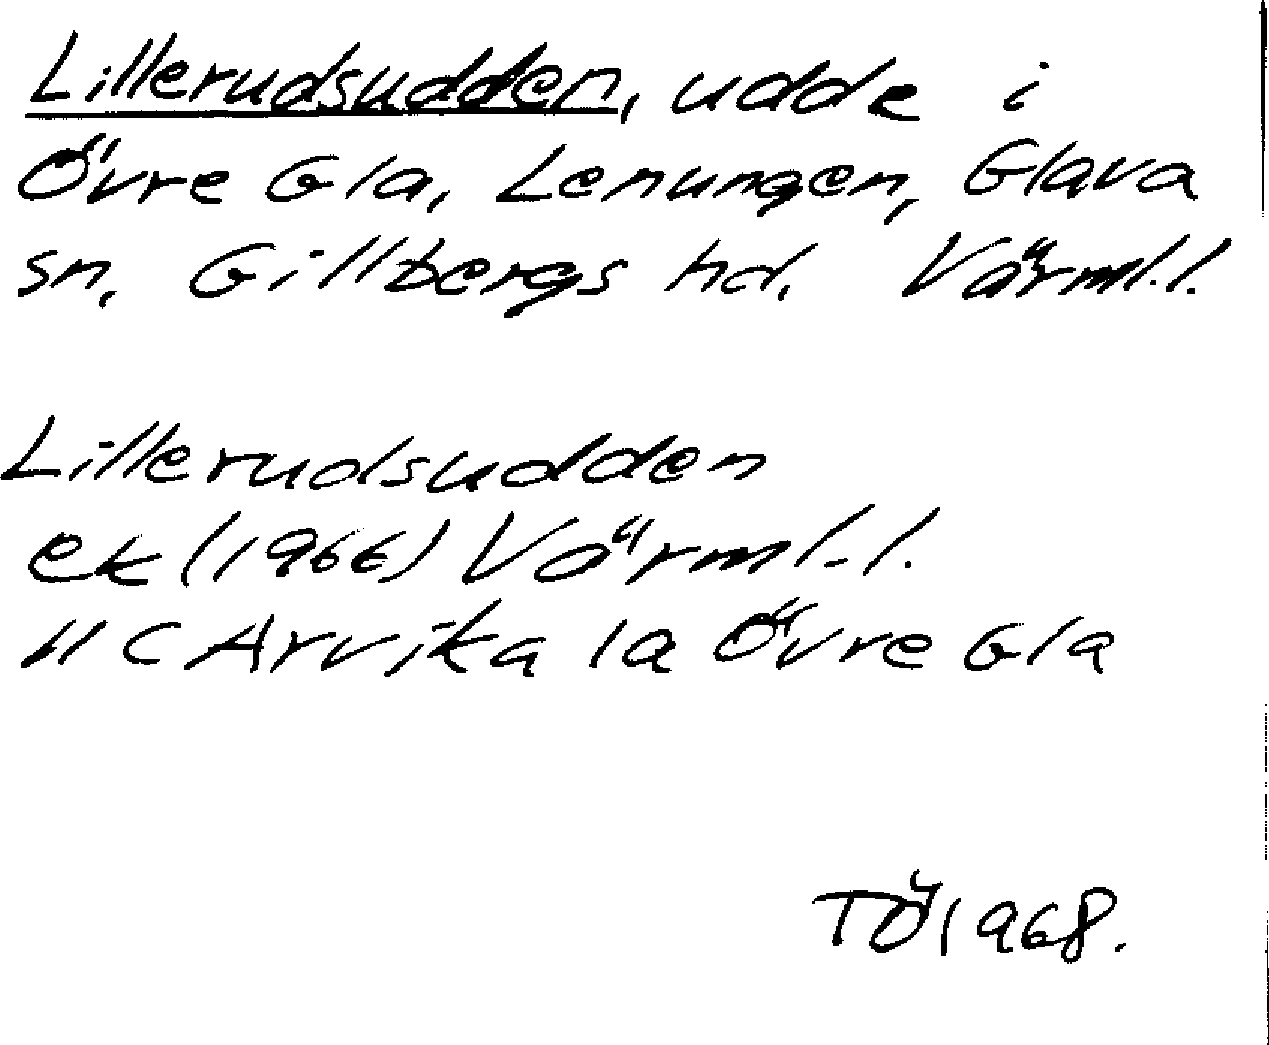 Lillerudsudden, udde i
Övre Gla, Lenungen, Glava
sn. Gillbergs hd. Värml.l.
Lillerudsudden
ek (1966) Värml.l.
11 C Arvika 1a Övre Gla
TÖ 1968.